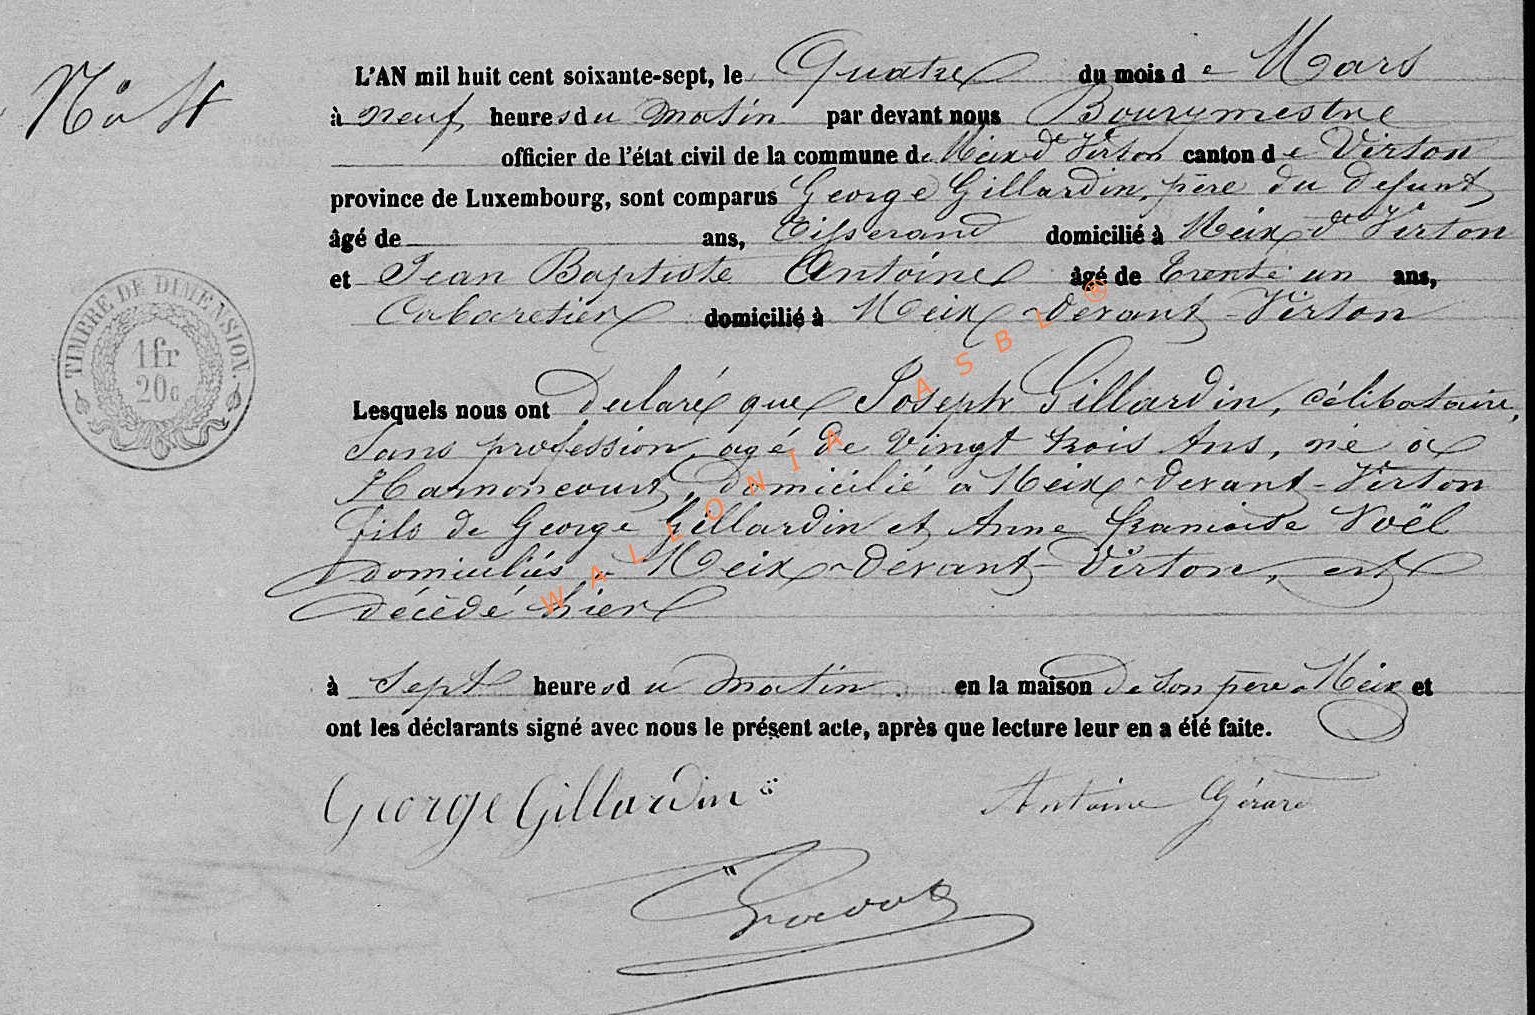 No 4
L'AN mil huit cent soixante-sept, le Quatre du mois de Mars
à neuf heures du matin par devant nous Bourgmestre
officier de l'état civil de la commune de Meix dt Virton canton de Virton
province de Luxembourg, sont comparus George Gillardin, père du defunt
âgé de ans, Tisserand domicilié à Meix dt Virton
et Jean Baptiste Antoine âgé de Trente un ans,
Cabaretier domicilié à Meix-devant-Virton
TIMBRE DE DIMENSION
1fr
20c
Lesquels nous ont Declaré que Joseph Gillardin, célibataire,
sans profession, agé de vingt trois ans, né à
Harnoncourt, domicilié à Meix-devant-Virton
fils de George Gillardin et Anne francoise Noël
domiciliés à Meix-devant-Virton, est
décédé hier
à Sept heures du matin en la maison de son père à Meix et
ont les déclarants signé avec nous le présent acte, après que lecture leur en a été faite.
George Gillardin
Antoine Gérard
WALLONIA ASBL ®